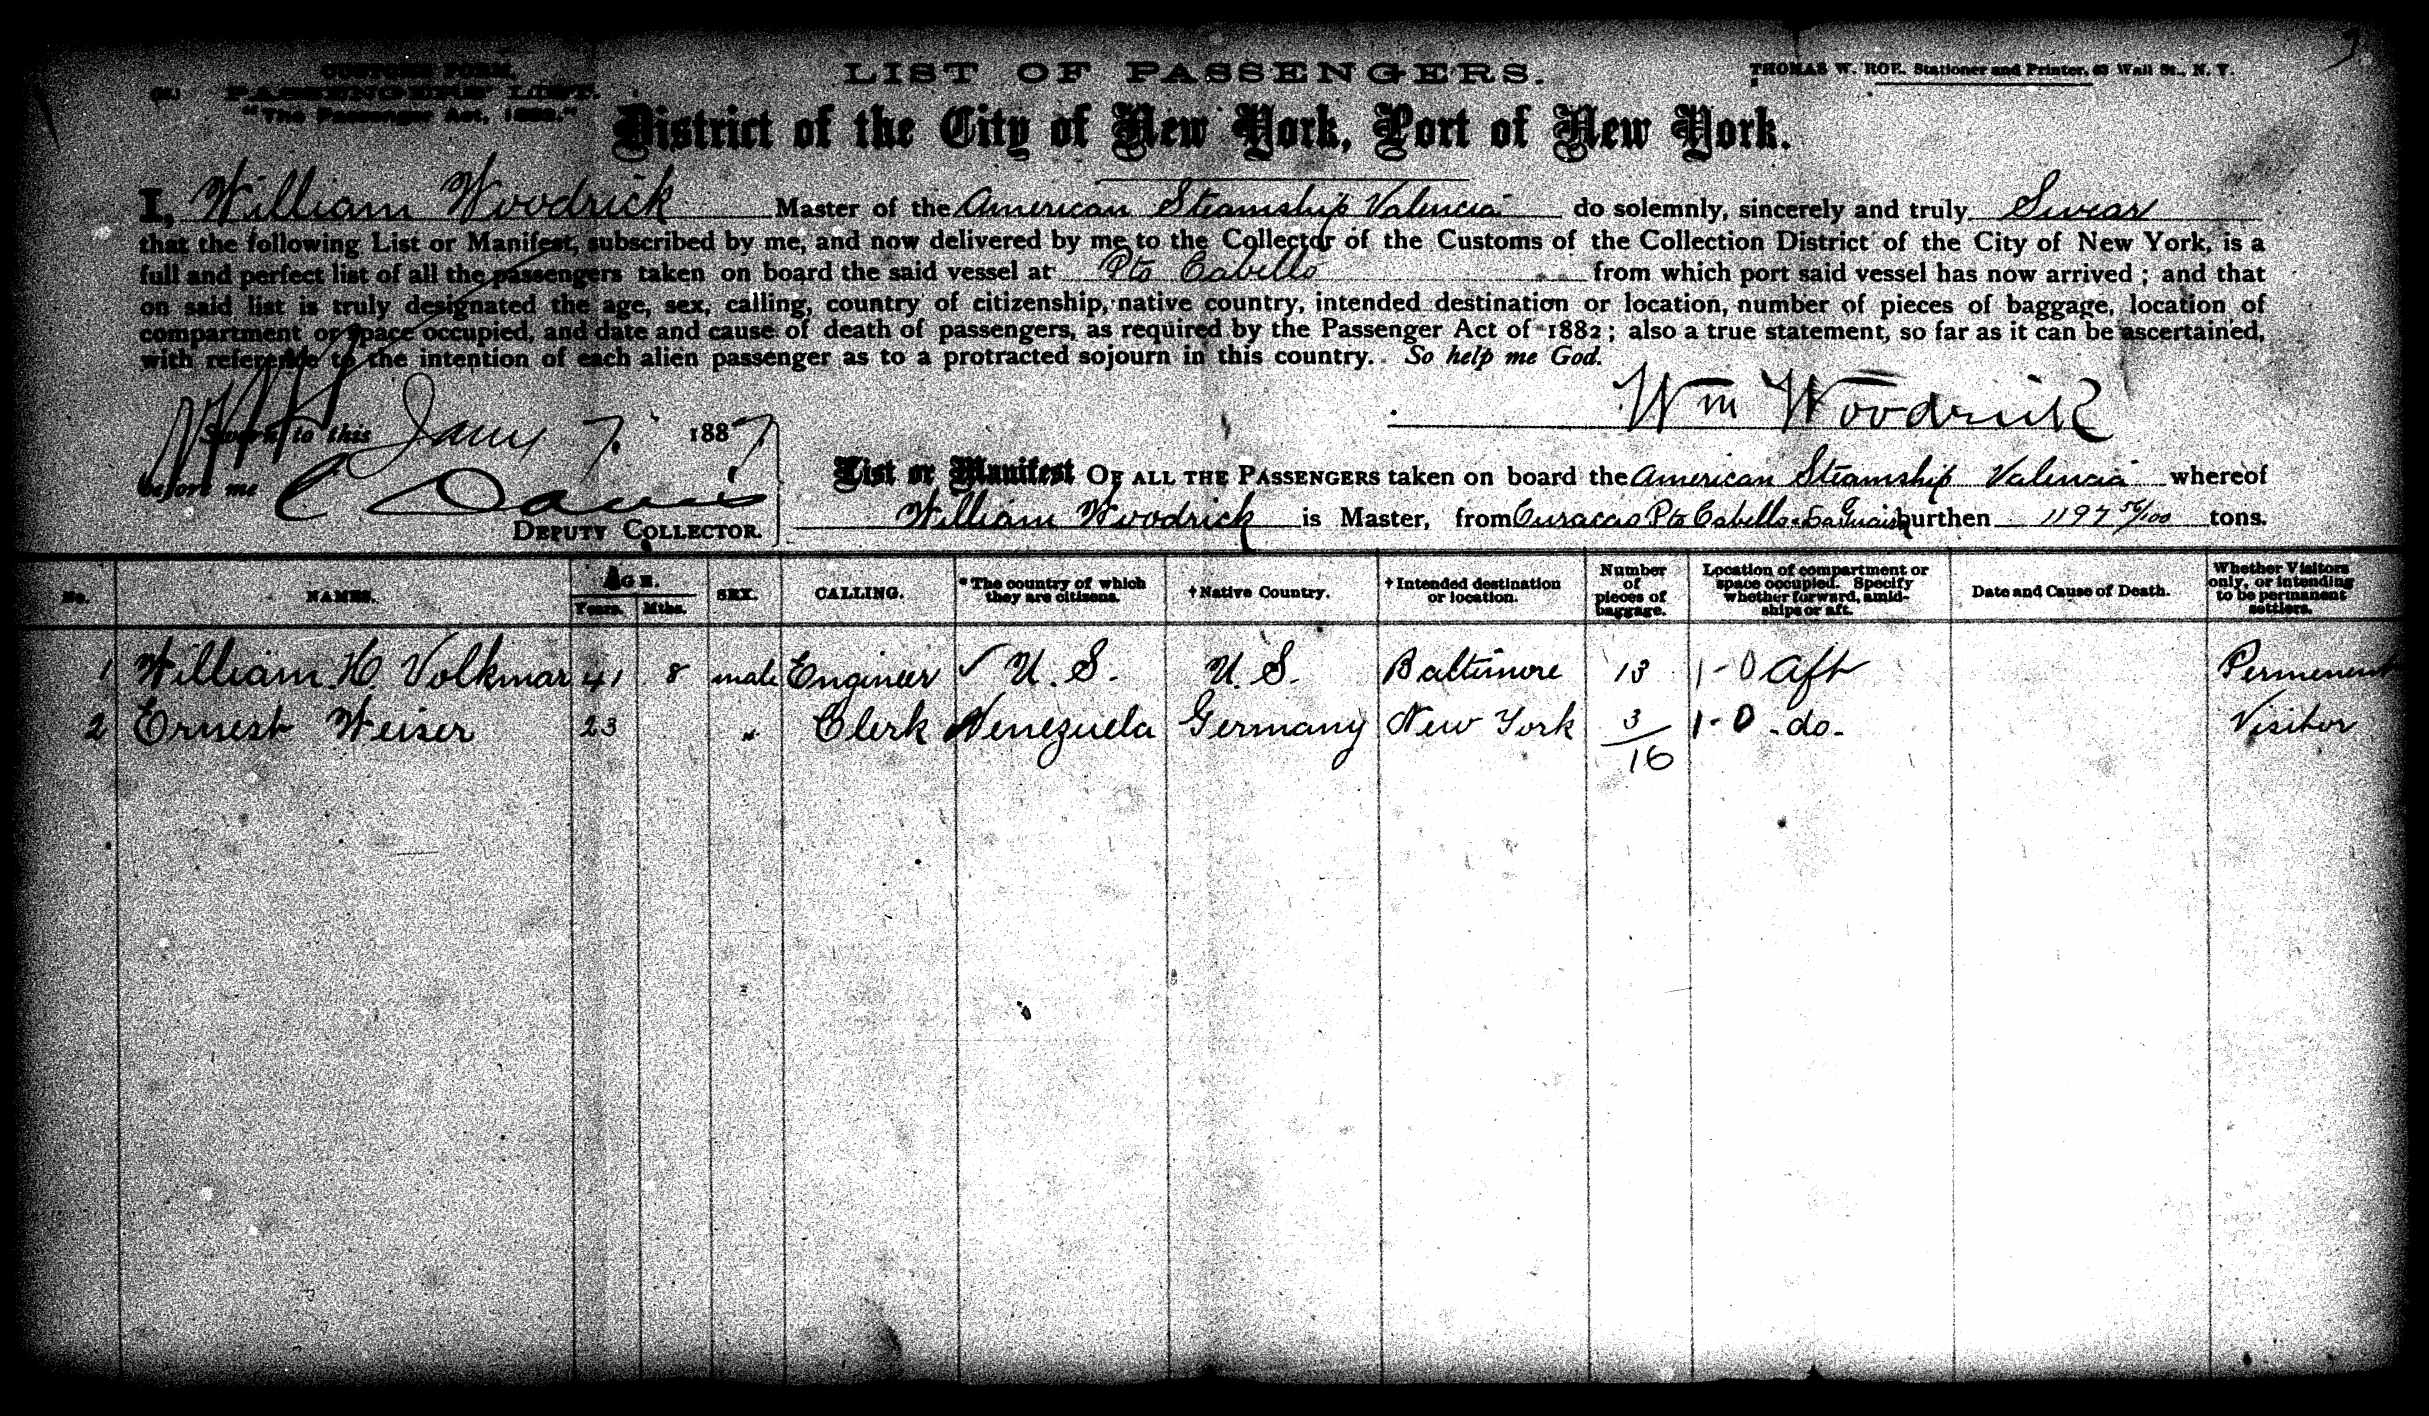 CUSTOMS FORM.
PASSENGERS' LIST.
"The Passenger Act, 1882."
LIST OF PASSENGERS.
THOMAS W. ROE, Stationer and Printer, 63 Wall St., N. Y.
District of the City of New York, Port of New York.
I, William Woodrick Master of the American Steamship Valencia do solemnly, sincerely and truly Swear
that the following List or Manifest, subscribed by me, and now delivered by me to the Collector of the Customs of the Collection District of the City of New York, is a
full and perfect list of all the passengers taken on board the said vessel at Pto Cabello from which port said vessel has now arrived; and that
on said list is truly designated the age, sex, calling, country of citizenship, native country, intended destination or location, number of pieces of baggage, location of
compartment or space occupied, and date and cause of death of passengers, as required by the Passenger Act of 1882; also a true statement, so far as it can be ascertained,
with reference to the intention of each alien passenger as to a protracted sojourn in this country. So help me God.
Wm Woodrick
Sworn to this Jany 7. 1887
before me C Davis
DEPUTY COLLECTOR.
List or Manifest OF ALL THE PASSENGERS taken on board the American Steamship Valencia whereof
William Woodrick is Master, from Curacao Pto Cabello & La Guaira burthen 1197 56/100 tons.
No. NAMES. AGE. Years. Mths. SEX. CALLING. * The country of which they are citizens. † Native Country. † Intended destination or location. Number of pieces of baggage. Location of compartment or space occupied. Specify whether forward, amidships or aft. Date and Cause of Death. Whether Visitors only, or intending to be permanent settlers.
1 William H Volkmar 41 8 male Engineer ✓ U.S. U.S. Baltimore 13 1-0 Aft Permenent
2 Ernest Weiser 23 " Clerk Venezuela Germany New York 3 1-0 -do- Visitor
16